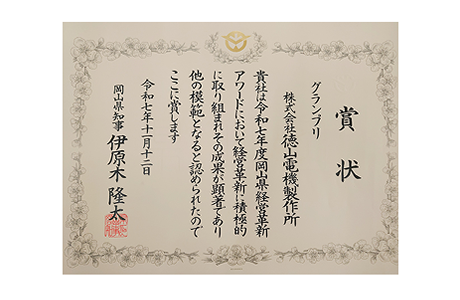 賞状
グランプリ
株式会社徳山電機製作所
貴社は令和七年度岡山県経営革新
アワードにおいて経営革新に積極的
に取り組まれその成果が顕著であり
他の模範となると認められたので
ここに賞します
令和七年十一月十二日
岡山県知事 伊原木隆太